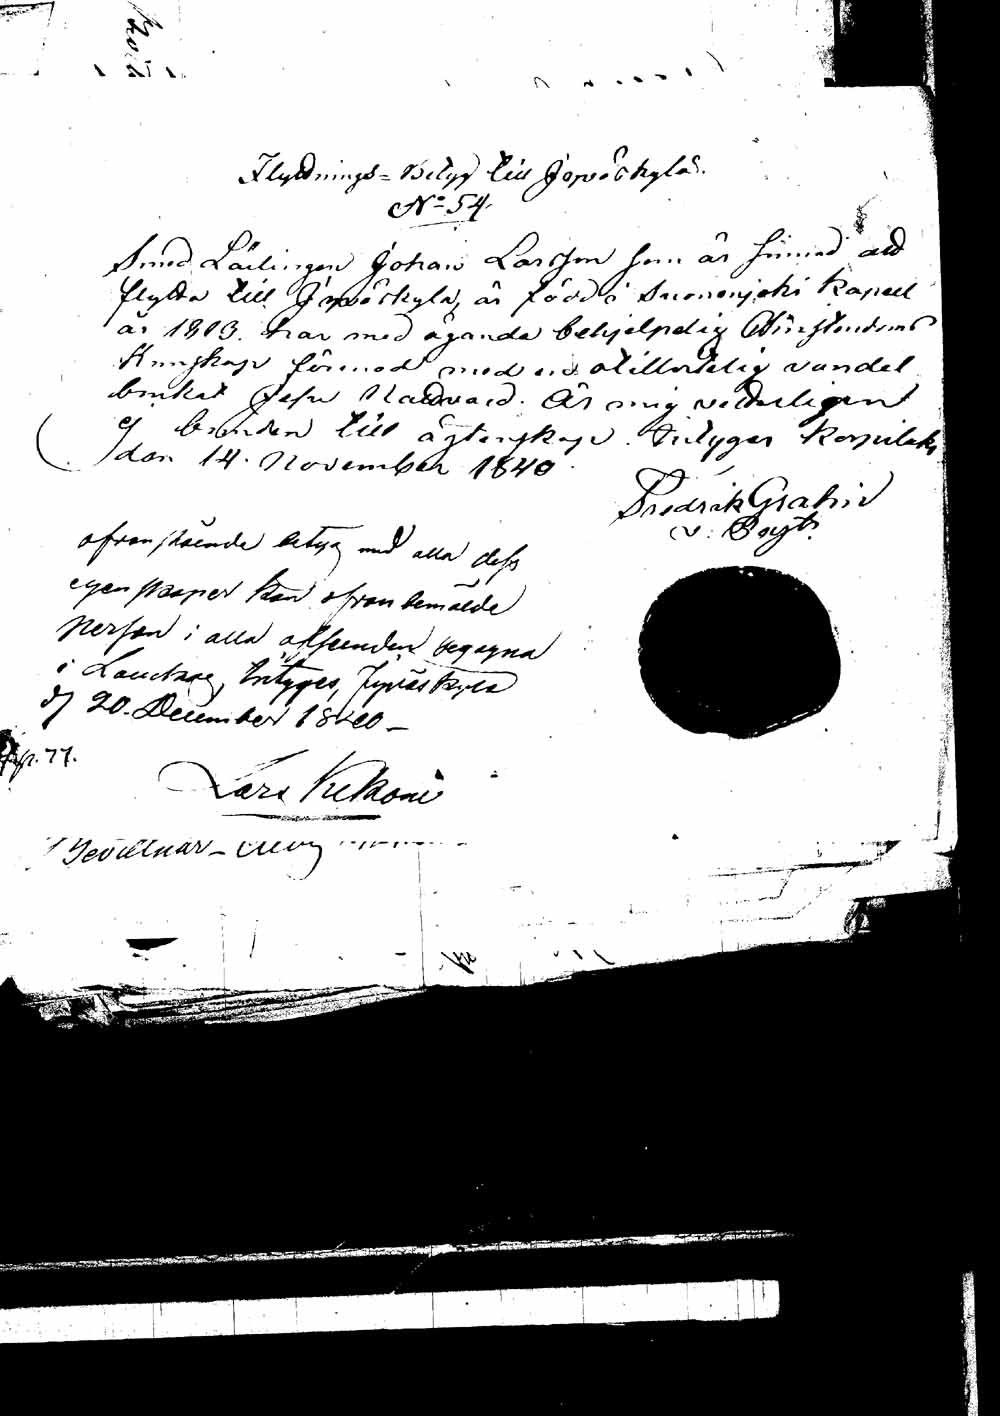 Flyttnings=Betyg till Jyväskylä.
No 54.
Smed Lärlingen Johan Larsson som är sinnad att
flytta till Jyväskylä, är född i Suonenjoki Kapell
år 1803. har med ägande behjelpelig Christendoms
Kunskap förenad med en otillbörlig vandel
brukat Hr Nattvard. Är mig veterligen
ej bunden till ägtenskap. Intygar Korpilaks
den 14. November 1840
Fredrik Grahn
v. Past.
ofvanstående betyg med alla dess
egenskaper kan ofvanbemälde
Person i alla afseenden begagna
i Laukas, intygas, Jyväskylä
d 20. December 1840 –
77.
Lars Kekoni